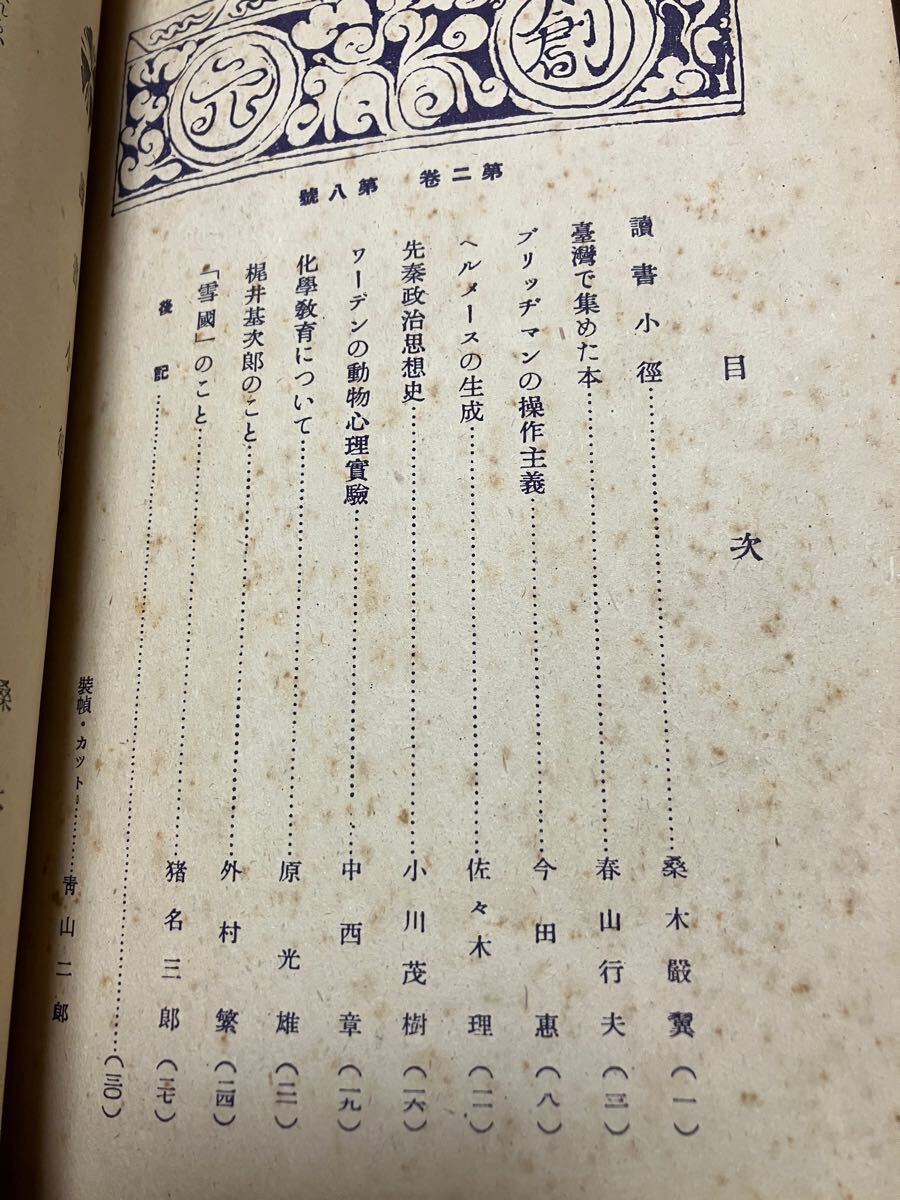 創元
第二卷 第八號
目次
讀書小徑……桑木嚴翼(一)
臺灣で集めた本……春山行夫(三)
ブリッヂマンの操作主義……今田惠(八)
ヘルメースの生成……佐々木理(一一)
先秦政治思想史……小川茂樹(一六)
ワーデンの動物心理實驗……中西章(一九)
化學敎育について……原光雄(二一)
梶井基次郎のこと……外村繁(二四)
「雪國」のこと……猪名三郎(二七)
後記……(三〇)
裝幀・カット……靑山二郎